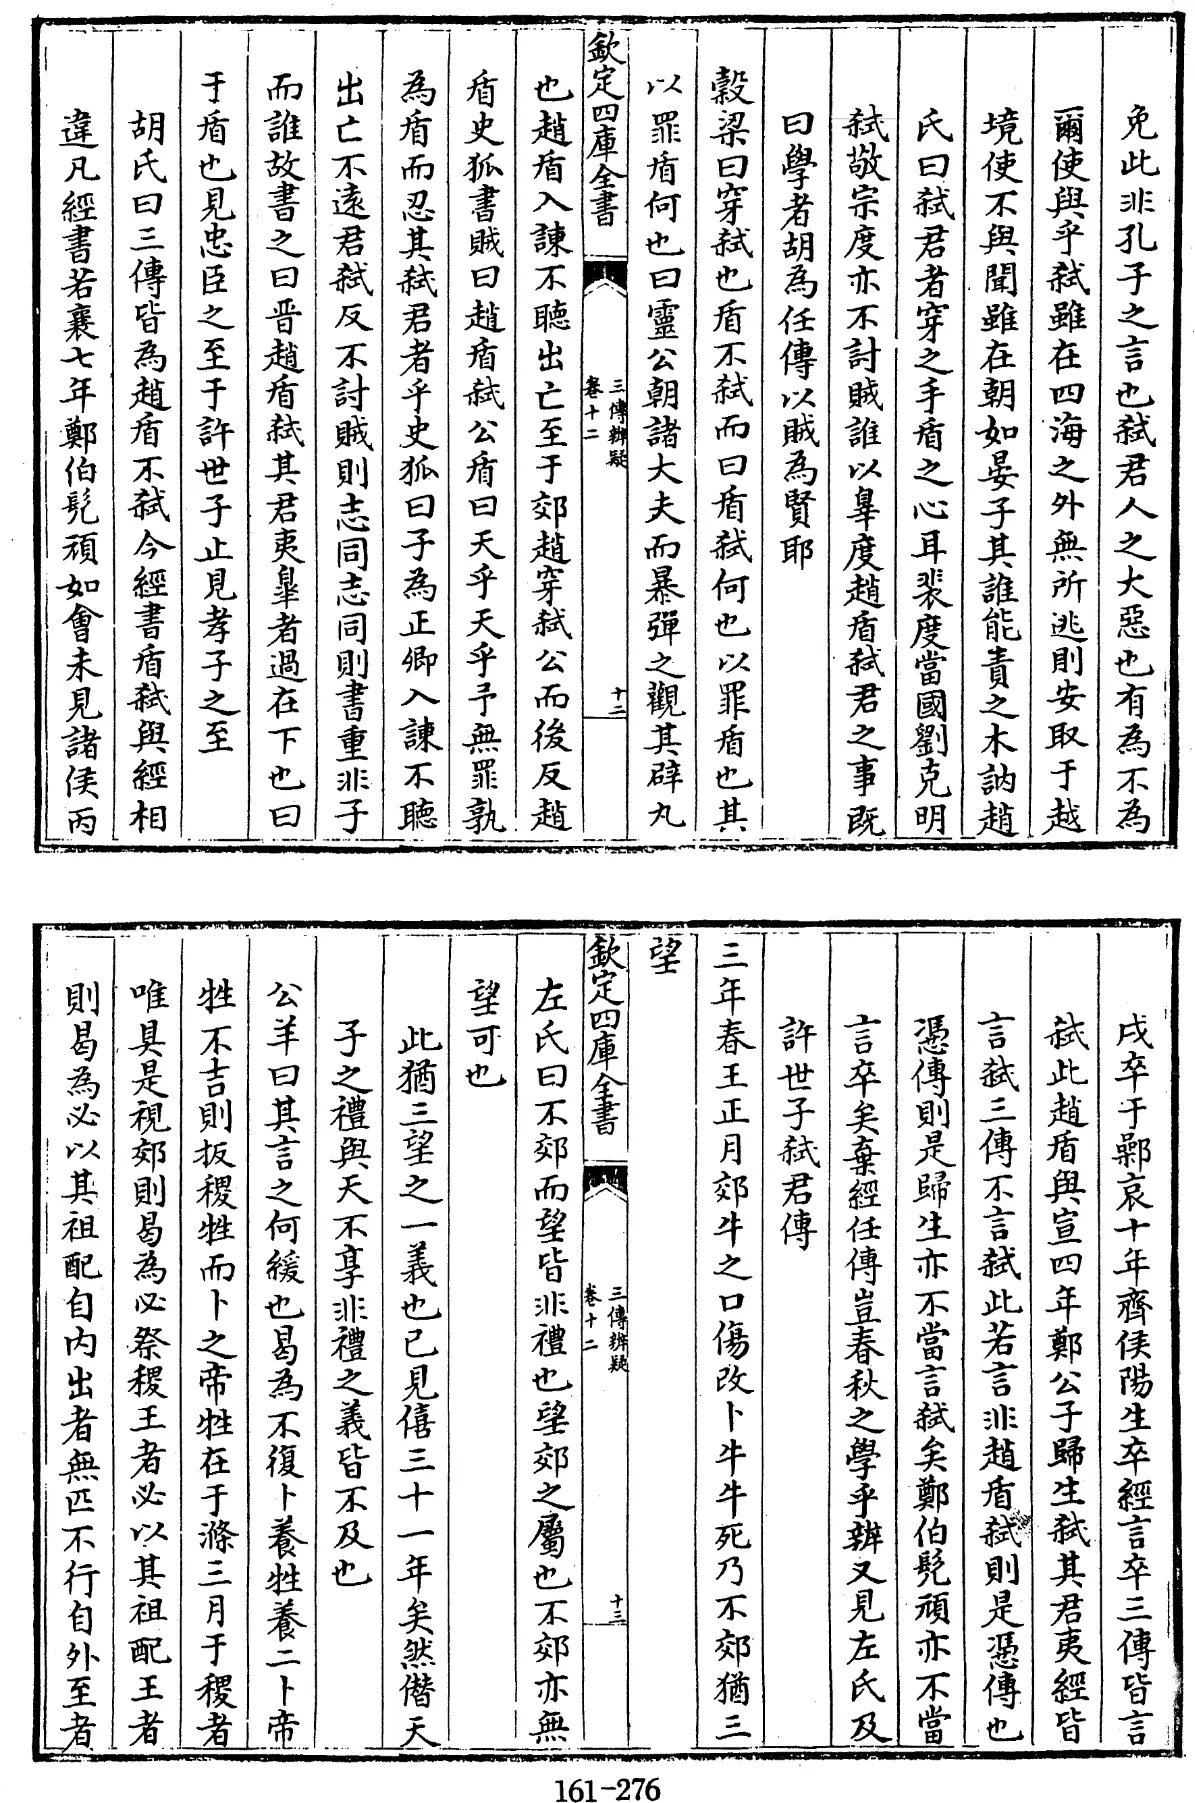 免此非孔子之言也弑君人之大惡也有為不為
爾使與乎弑雖在四海之外無所逃則安取于越
境使不與聞雖在朝如晏子其誰能責之木訥趙
氏曰弑君者穿之手盾之心耳裴度當國劉克明
弑敬宗度亦不討賊誰以辠度趙盾弑君之事既
曰學者胡為任傳以賊為賢耶
穀梁曰穿弑也盾不弑而曰盾弑何也以罪盾也其
以罪盾何也曰靈公朝諸大夫而暴彈之觀其辟丸
欽定四庫全書
三傳辨疑
卷十二
十二
也趙盾入諫不聽出亡至于郊趙穿弑公而後反趙
盾史狐書賊曰趙盾弑公盾曰天乎天乎予無罪孰
為盾而忍其弑君者乎史狐曰子為正卿入諫不聽
出亡不遠君弑反不討賊則志同志同則書重非子
而誰故書之曰晉趙盾弑其君夷皐者過在下也曰
于盾也見忠臣之至于許世子止見孝子之至
胡氏曰三傳皆為趙盾不弑今經書盾弑與經相
違凡經書若襄七年鄭伯髠頑如會未見諸侯丙
戌卒于鄵哀十年齊侯陽生卒經言卒三傳皆言
弑此趙盾與宣四年鄭公子歸生弑其君夷經皆
言弑三傳不言弑此若言非趙盾弑則是憑傳也
憑傳則是歸生亦不當言弑矣鄭伯髠頑亦不當
言卒矣棄經任傳豈春秋之學乎辨又見左氏及
許世子弑君傳
三年春王正月郊牛之口傷改卜牛牛死乃不郊猶三
望
欽定四庫全書
三傳辨疑
卷十二
十三
左氏曰不郊而望皆非禮也望郊之屬也不郊亦無
望可也
此猶三望之一義也已見僖三十一年矣然僭天
子之禮與天不享非禮之義皆不及也
公羊曰其言之何緩也曷為不復卜養牲養二卜帝
牲不吉則扳稷牲而卜之帝牲在于滌三月于稷者
唯具是視郊則曷為必祭稷王者必以其祖配王者
則曷為必以其祖配自內出者無匹不行自外至者
161-276